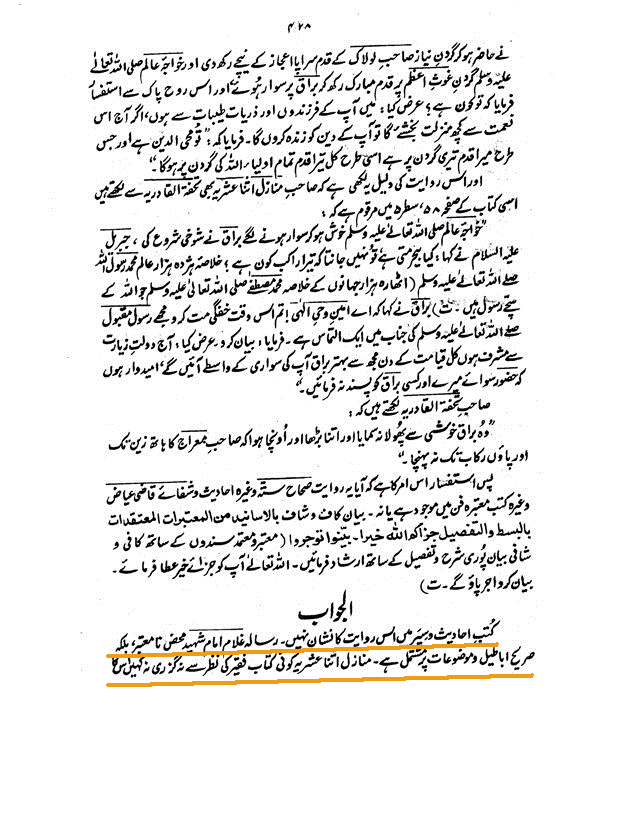 ۴۲۸
نے حاضر ہو کر گردنِ نیاز صاحبِ لولاک کے قدم سراپا اعجاز کے نیچے رکھ دی اور خواجۂ عالم صلی اللہ تعالیٰ
علیہ وسلم گردنِ غوثِ اعظم پر قدم مبارک رکھ کر براق پر سوار ہوئے اور اس روحِ پاک سے استفسار
فرمایا کہ تو کون ہے؟ عرض کیا: میں آپ کے فرزندوں اور ذریاتِ طیبات سے ہوں، اگر آج اس
نعمت سے کچھ منزلت بخشئے گا تو آپ کے دین کو زندہ کروں گا۔ فرمایا کہ: "تو محی الدین ہے اور جس
طرح میرا قدم تیری گردن پر ہے اسی طرح کل تیرا قدم تمام اولیاء اللہ کی گردن پر ہوگا۔"
اور اس روایت کی دلیل یہ لکھی ہے کہ صاحبِ منازل اثنا عشریہ بھی تحفۃ القادریہ سے لکھتے ہیں
اسی کتاب کے صفحہ ۵۸، سطر ۵ میں مرقوم ہے کہ:
"خواجۂ عالم صلی اللہ تعالیٰ علیہ وسلم خوش ہو کر سوار ہونے لگے براق نے شوخی شروع کی، جبریل
علیہ السلام نے کہا: کیا بیحرمتی ہے تو نہیں جانتا کہ تیرا راکب کون ہے؟ خلاصہ ہژدہ ہزار عالم محمد رسول اللہ
صلے اللہ تعالےٰ علیہ وسلم (اٹھارہ ہزار جہانوں کے خلاصہ محمد مصطفٰے صلی اللہ تعالیٰ علیہ وسلم جو اللہ کے
سچے رسول ہیں۔ ت) براق نے کہا کہ اے امینِ وحیِ الٰہی! تم اس وقت خفگی مت کرو مجھے رسول مقبول
صلے اللہ تعالےٰ علیہ وسلم کی جناب میں ایک التماس ہے۔ فرمایا: بیان کرو۔ عرض کیا: آج دولتِ زیارت
سے مشرف ہوں کل قیامت کے دن مجھ سے بہتر براق آپ کی سواری کے واسطے آئیں گے، امیدوار ہوں
کہ حضور سوائے میرے اور کسی براق کو پسند نہ فرمائیں۔"
صاحبِ تحفۃ القادریہ لکھتے ہیں کہ:
"وہ براق خوشی سے پھولا نہ سمایا اور اتنا بڑھا اور اونچا ہوا کہ صاحبِ معراج کا ہاتھ زین تک
اور پاؤں رکاب تک نہ پہنچا۔"
پس استفسار اس امر کا ہے کہ آیا یہ روایت صحاح ستہ وغیرہ احادیث و شفائے قاضی عیاض
وغیرہ کتب معتبرہ فن میں موجود ہے یا نہ۔ بیان کاف و شاف بالاسانید من المعتبرات المعتقدات
بالبسط والتفصیل جزاکم اللہ خیرا۔ بینوا توجروا (معتبر و معتمد سندوں کے ساتھ کافی و
شافی بیان پوری شرح و تفصیل کے ساتھ ارشاد فرمائیں۔ اللہ تعالےٰ آپ کو جزائے خیر عطا فرمائے۔
بیان کرو اجر پاؤ گے۔ ت)
الجواب
کتبِ احادیث و سیر میں اس روایت کا نشان نہیں۔ رسالہ غلام امام شہید محض نامعتبر، بلکہ
صریح اباطیل و موضوعات پر مشتمل ہے۔ منازل اثنا عشریہ کوئی کتاب فقیر کی نظر سے نہ گزری نہ کہیں اس کا